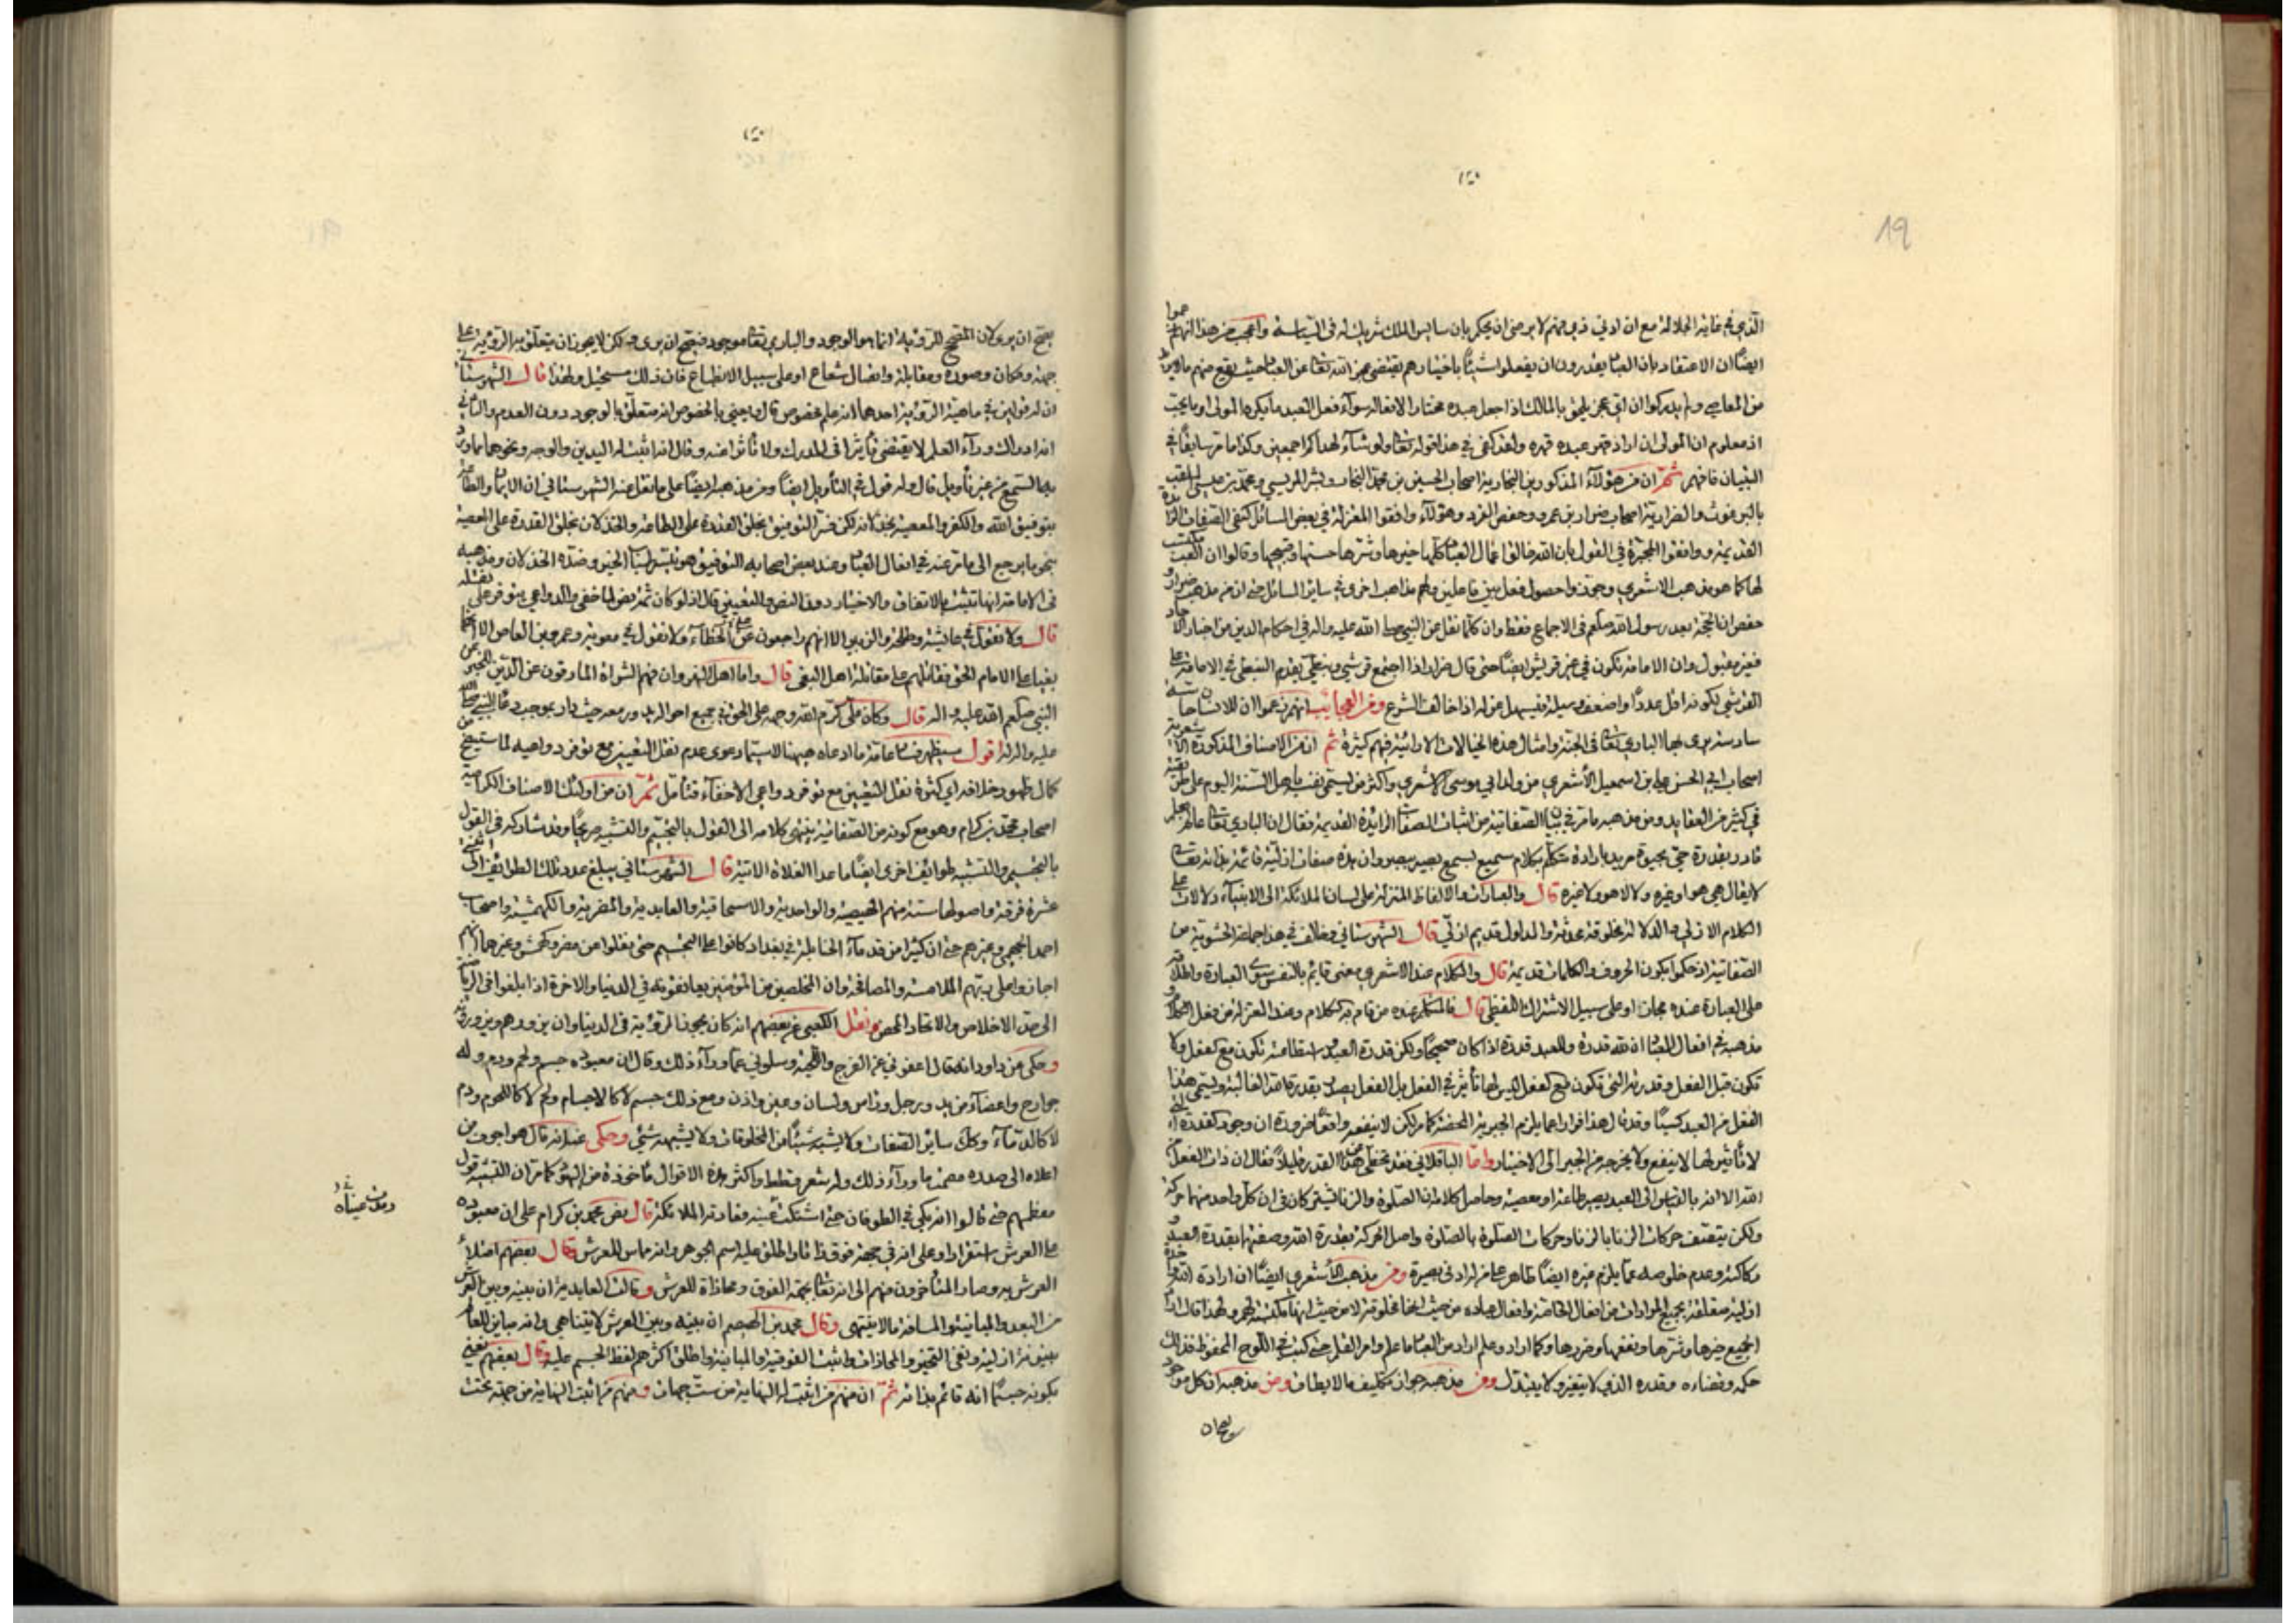 19
الذي في غاية الجلالة مع ان ادنى ذي فهم لا يرضى ان يحكم بان سايس الملك شريك له في السياسة واعجب من هذا انهم زعموا
ايضا ان الاعتقاد بان العباد يقدرون ان يفعلوا شيئا باختيارهم يقتضي عجز الله تعالى عن العباد حيث يقع منهم ما لا يريد
من المعاصي ولم يدركوا ان اي عجز يلحق بالمالك اذا جعل عبده مختارا لافعاله سواء فعل العبد ما يكره المولى او ما يحب
اذ معلوم ان المولى ان اراد قهر عبده قهره ولقد كفى في هذا قوله تعالى ولو شاء لهداكم اجمعين وكذا ما مر سابقا في
التبيان فافهم ثم ان من هؤلاء المذكورين النجارية اصحاب الحسين بن محمد النجار وبشر المريسي ومحمد بن عيسى الملقب
بالبرغوث والضرارية اصحاب ضرار بن عمرو وحفص الفرد وهؤلاء وافقوا المعتزلة في بعض المسائل كنفي الصفات الزائدة
القديمة ووافقوا المجبرة في القول بان الله خالق اعمال العباد كلها خيرها وشرها حسنها وقبيحها وقالوا ان العبد مكتسب
لها كما هو مذهب الاشعري وجوزوا حصول فعل بين فاعلين ولهم مذاهب اخرى في ساير المسائل حتى ان من مذهب ضرار و
حفص ان الحجة بعد رسول الله صلعم في الاجماع فقط وان كلما نقل عن النبي صلى الله عليه واله في احكام الدين من اخبار الآحاد
فغير مقبول وان الامامة تكون في غير قريش ايضا حتى قال ضرار اذا اجتمع قرشي ونبطي يقدم النبطي في الامامة على
القرشي لكونه اقل عددا واضعف وسيلة فيسهل عزله اذا خالف الشرع ومن العجايب انهم زعموا ان للانسان حاسة
سادسة يرى بها الباري تعالى في الجنة وامثال هذه الخيالات الارائية فيهم كثيرة ثم ان من الاصناف المذكورة الاشعرية
اصحاب ابي الحسن علي بن اسمعيل الأشعري من ولد ابي موسى الاشعري واكثر من يسمي نفسه باهل السنة اليوم على طريقته
في كثير من العقايد ومن مذهبه ما مر في بيان الصفاتية من اثبات الصفات الزائدة القديمة فقال ان الباري تعالى عالم بعلم
قادر بقدرة حي بحيوة مريد بارادة متكلم بكلام سميع بسمع بصير ببصر وان هذه صفات ازلية قائمة بذاته تعالى
لا يقال هي هو او غيره ولا لا هو ولا غيره قال والعبارات والالفاظ المنزلة على لسان الملائكة الى الانبياء دلالات على
الكلام الازلي والدلالة مخلوقة محدثة والمدلول قديم ازلي قال الشهرستاني وخالف في هذا جماعة الحشوية من
الصفاتية اذ حكموا بكون الحروف والكلمات قديمة قال والكلام عند الاشعري معنى قايم بالنفس سوى العبارة واطلاقه
على العبارة عنده مجاز او على سبيل الاشتراك اللفظي قال فالمتكلم عنده من قام به الكلام وعند المعتزلة من فعل الكلام و
مذهبه في افعال العباد ان لله قدرة وللعبد قدرة اذا كان صحيحا ولكن قدرة العبد استطاعة تكون مع الفعل ولا
تكون قبل الفعل وقدرته التي تكون مع الفعل ليس لها تأثير في الفعل بل الفعل يصدر بقدرة الله الغالبة ويسمى هذا
الفعل من العبد كسبا وقد قال هذا فرارا عما يلزم الجبرية المحضة كما مر لكن لا ينفعه واقعا ضرورة ان وجود القدرة التي
لا تأثير لها لا ينفع ولا يخرجه من الجبر الى الاختيار واما الباقلاني فقد تخطى عن هذا القدر قليلا فقال ان ذات الفعل من
الله الا انه بالقياس الى العبد يصير طاعة او معصية وحاصل كلامه ان الصلوة والزنا يشتركان في ان كل واحد منهما حركة
ولكن يتصف حركات الزنا بالزنا وحركات الصلوة بالصلوة واصل الحركة بقدرة الله وصفتها بقدرة العبد و
ركاكته وعدم خلوصه عما يلزم غيره ايضا ظاهر على من له ادنى بصيرة ومن مذهب الأشعري ايضا ان ارادة الله واحدة
ازلية متعلقة بجميع المرادات من افعال الخاصة وافعال عباده من حيث انها مخلوقة له لا من حيث انها مكتسبة لهم ولهذا قال اراد
الجميع خيرها وشرها ونفعها وضرها وكما اراد وعلم اراد من العباد ما علم وامر القلم حتى كتب في اللوح المحفوظ فذلك
حكمه وقضاءه وقدره الذي لا يتغير ولا يتبدل ومن مذهبه جواز تكليف ما لا يطاق ومن مذهبه ان كل موجود
يصح ان يرى لان المصحح للرؤية انما هو الوجود والباري تعالى موجود فيصح ان يرى ولكن لا يجوز ان يتعلق به الرؤية على
جهة ومكان وصورة ومقابلة واتصال شعاع او على سبيل الانطباع فان ذلك مستحيل ولهذا قال الشهرستاني
ان له قولين في ماهية الرؤية احدهما انه علم مخصوص قال ويعني بالخصوص انه متعلق بالوجود دون العدم والثاني
انه ادراك وراء العلم لا يقتضي تأثيرا في المدرك ولا تأثرا عنه وقال انه اثبت له اليدين والوجه ونحوهما مما ورد
بها السمع من غير تأويل قال وله قول في التأويل ايضا ومن مذهبه ايضا على ما نقل عنه الشهرستاني ان الايمان والطاعة
بتوفيق الله والكفر والمعصية بخذلانه لكن فسر التوفيق بخلق القدرة على الطاعة والخذلان بخلق القدرة على المعصية
بنحو ما يرجع الى ما مر عنه في افعال العباد وعند بعض اصحابه التوفيق هو تيسير اسباب الخير وضده الخذلان ومذهبه
في الامامة انها تثبت بالاتفاق والاختيار دون النص والتعيين قال اذ لو كان ثمة نص لما خفي والدواعي تتوفر على نقله
قال ولا نقول في عايشة وطلحة والزبير الا انهم راجعون عن الخطاء ولا نقول في معوية وعمرو بن العاص الا انهما
بغيا على الامام الحق فقاتلهم على مقاتلة اهل البغي قال واما اهل النهروان فهم الشراة المارقون عن الدين بخبر
النبي صلعم الله عليه واله قال وكان علي كرم الله وجهه على الحق في جميع احواله يدور معه حيث دار بموجب دعاء النبي صلى الله
عليه واله له اقول سيظهر فساد عامة ما ادعاه هيهنا لاسيما دعوى عدم نقل التعيين مع توفر دواعيه لما ستتضح من
كمال ظهور خلافه اي كثرة نقل التعيين مع توفر دواعي الاخفاء فتأمل ثم ان من اولئك الاصناف الكرامية
اصحاب محمد بن كرام وهو مع كونه من الصفاتية ينتهي كلامه الى القول بالتجسيم والتشبيه صريحا وقد شاركه في القول
بالتجسيم والتشبيه طوائف اخرى ايضا ما عدا الغلاة الاتية قال الشهرستاني يبلغ عدد تلك الطوائف الى اثنتي
عشرة فرقة واصولها ستة منهم الهيصمية والواحدية والاسحاقية والعابدية والمضرية والكهمشية واصحاب
احمد الهجيمي وغيرهم حتى ان كثيرا من قدماء الحنابلة في بغداد كانوا على التجسيم حتى نقلوا عن مضر وكهمش وغيرهما انهم
اجازوا على ربهم الملامسة والمصافحة وان المخلصين من المؤمنين يعانقونه في الدنيا والاخرة اذا بلغوا في الرياضة
الى حد الاخلاص والاتحاد المحض ونقل الكعبي عن بعضهم انه كان يجوز الرؤية في الدنيا وان يزورهم ويزورونه
وحكي عن داود انه قال اعفوني عن الفرج واللحية وسلوني عما وراء ذلك وقال ان معبوده جسم ولحم ودم وله
جوارح واعضاء من يد ورجل وراس ولسان وعين واذن ومع ذلك جسم لا كالاجسام ولحم لا كاللحوم ودم
لا كالدماء وكذلك ساير الصفات ولا يشبه شيئا من المخلوقات ولا يشبهه شئ وحكي عنه انه قال هو اجوف من
اعلاه الى صدره مصمت ما وراء ذلك وله شعر قطط واكثر هذه الاقوال مأخوذة من اليهود كما مر ان التشبيه قول
معظمهم حتى قالوا انه بكى في الطوفان حتى اشتكت عينه فعادته الملائكة قال نص محمد بن كرام على ان معبوده
على العرش استقرارا وعلى انه في جهة فوق ذاتا واطلق عليه اسم الجوهر وانه مماس للعرش وقال بعضهم امتلأ
العرش به وصار المتأخرون منهم الى انه تعالى بجهة الفوق ومحاذاة للعرش وقالت العابدية ان بينه وبين العرش
من البعد والمباينة والمسافة ما لا ينتهي وقال محمد بن الهيصم ان بينه وبين العرش لا يتناهى وانه مباين للعالم
بينونة ازلية ونفى التحيز والمحاذاة واثبت الفوقية والمباينة واطلق اكثرهم لفظ الجسم عليه وقال بعضهم نعني
بكونه جسما انه قائم بذاته ثم ان منهم من اثبت له النهاية من ست جهات ومنهم من اثبت النهاية من جهة تحت